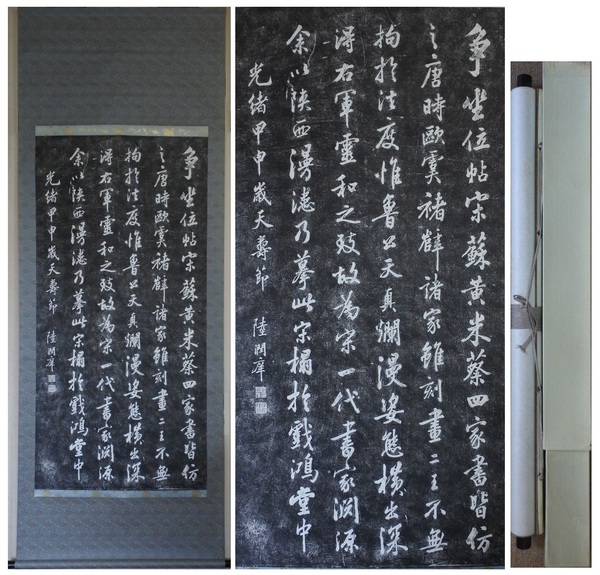 争坐位帖宋蘇黃米蔡四家書皆仿
之唐時歐虞褚薛諸家雖刻畫二王不無
拘於法度惟魯公天真爛漫姿態橫出深
得右軍靈和之致故為宋一代書家淵源
余以陝西漫漶乃摹此宋榻於戲鴻堂中
光緒甲申歲天壽節 陸潤庠
争坐位帖宋蘇黃米蔡四家書皆仿
之唐時歐虞褚薛諸家雖刻畫二王不無
拘於法度惟魯公天真爛漫姿態橫出深
得右軍靈和之致故為宋一代書家淵源
余以陝西漫漶乃摹此宋榻於戲鴻堂中
光緒甲申歲天壽節 陸潤庠